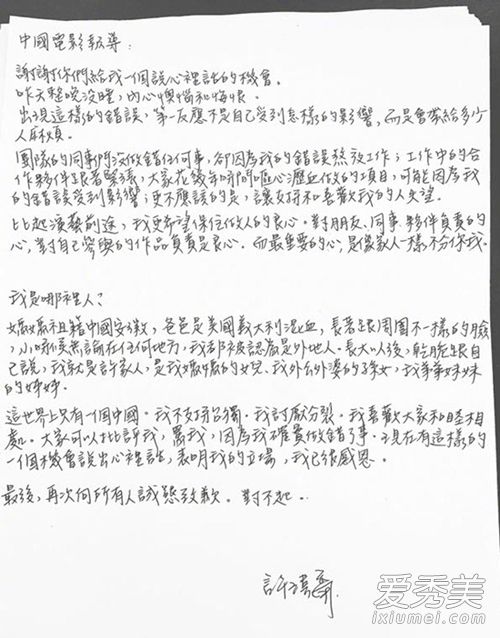 中國電影報導：
謝謝你們給我一個說心裡話的機會。
昨天整晚沒睡，內心懊惱和悔恨。
出現這樣的錯誤，第一反應不是自己受到怎樣的影響，而是會帶給多少
人麻煩。
團隊的同事們沒做錯任何事，卻因為我的錯誤熬夜工作；工作中的合
作夥伴跟著緊張，大家花幾年時間嘔心瀝血做的項目，可能因為我
的錯誤受到影響；更不應該的是，讓支持和喜歡我的人失望。
比起演藝前途，我更希望保住做人的良心。對朋友、同事、夥伴負責的
心，對自己參與的作品負責是良心。而最重要的心，是像家人一樣不分你我。
我是哪裡人？
媽媽祖籍中國安徽，爸爸是美國義大利混血，長著跟周圍不一樣的臉，
小時候無論在任何地方，我都被認為是外地人。長大以後，乾脆跟自
己說，我就是許家人，是我媽媽的女兒，我外公外婆的孫女，我弟弟妹妹
的姊姊。
這世界上只有一個中國。我不支持台獨。我討厭分裂。我喜歡大家和睦相
處。大家可以批評我，罵我，因為我確實做錯了事。現在有這樣的
一個機會說出心裡話，表明我的立場，我已很感恩。
最後，再次向所有人誠懇致歉。對不起。
許瑋甯
爱秀美
ixiumei.com